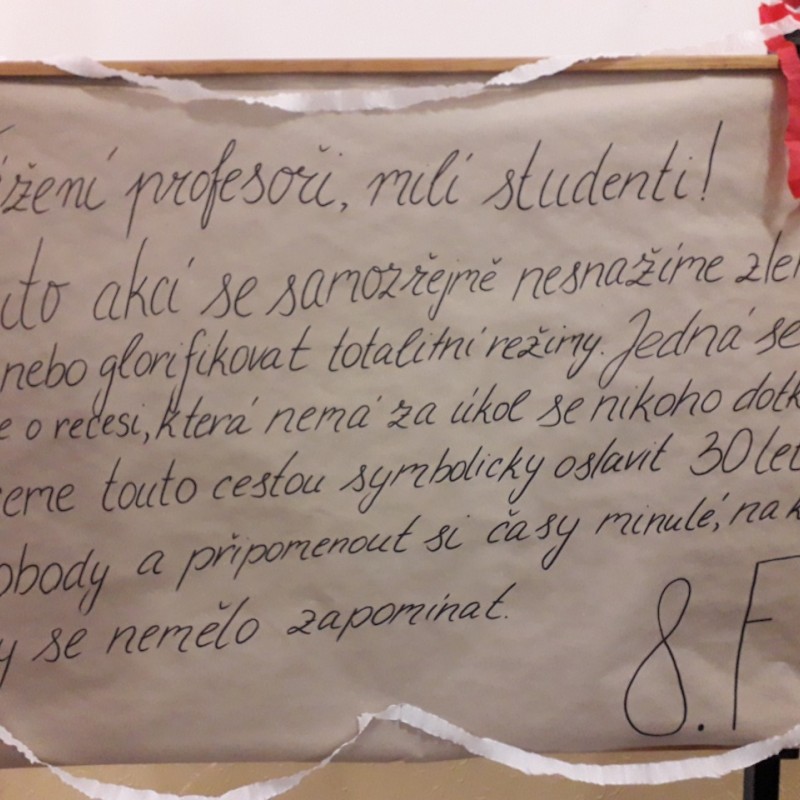 žení profesoři, milí studenti!
uto akcí se samozřejmě nesnažíme zleh
nebo glorifikovat totalitní režimy. Jedná se
e o recesi, která nemá za úkol se nikoho dotk
ceme touto cestou symbolicky oslavit 30 let
obody a připomenout si časy minulé, na k
y se nemělo zapomínat.
8.F